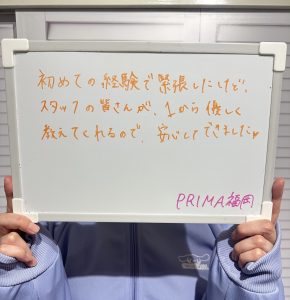 初めての経験で緊張したけど、
スタッフの皆さんが、1から優しく
教えてくれるので、安心してできました♡
PRIMA福岡